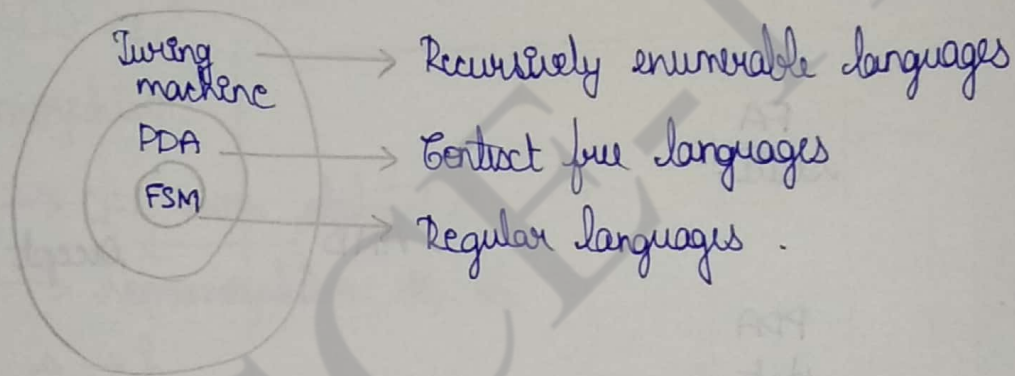 Turing machine → Recursively enumerable languages
PDA → Context free languages
FSM → Regular languages .